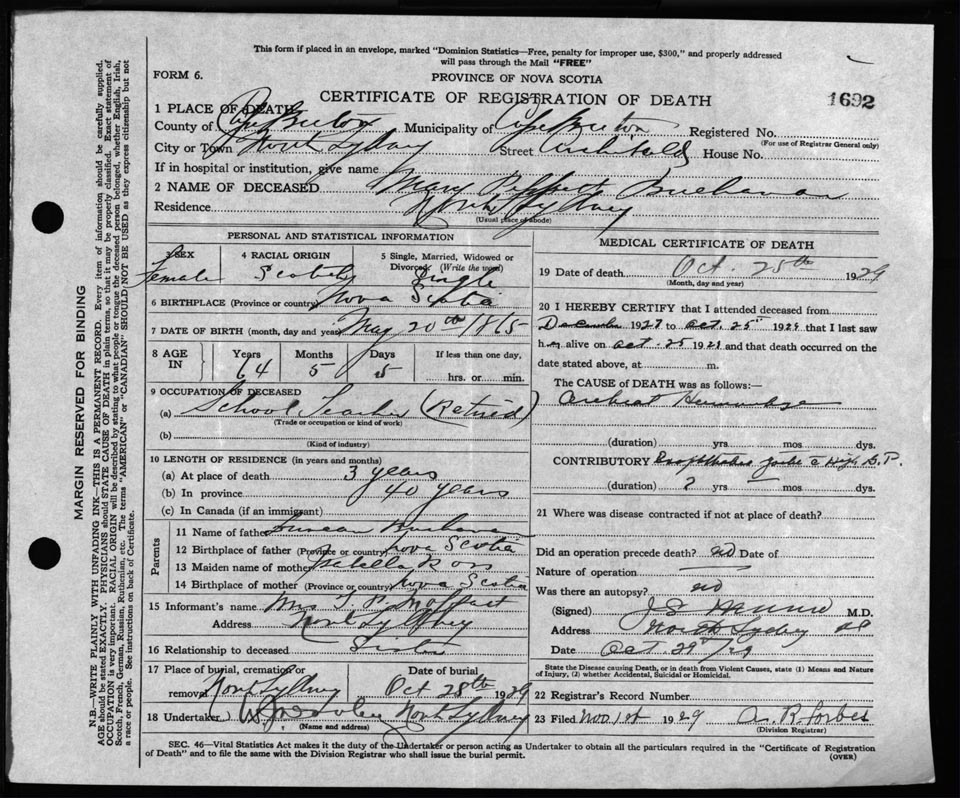 This form if placed in an envelope, marked "Dominion Statistics—Free, penalty for improper use, $300," and properly addressed
will pass through the Mail "FREE"
FORM 6.
PROVINCE OF NOVA SCOTIA
CERTIFICATE OF REGISTRATION OF DEATH
1692
1 PLACE OF DEATH
County of Cape Breton Municipality of Cape Breton Registered No.
(For use of Registrar General only)
City or Town North Sydney Street Archibald House No.
If in hospital or institution, give name
2 NAME OF DECEASED Mary Buchanan
Residence North Sydney
(Usual place of abode)
PERSONAL AND STATISTICAL INFORMATION
3 SEX 4 RACIAL ORIGIN 5 Single, Married, Widowed or Divorced (Write the word)
Female Scotch Single
6 BIRTHPLACE (Province or country) Nova Scotia
7 DATE OF BIRTH (month, day and year) May 20th 1865
8 AGE IN Years Months Days If less than one day,
64 5 5 hrs. or min.
9 OCCUPATION OF DECEASED
(a) School Teacher (Retired)
(Trade or occupation or kind of work)
(b)
(Kind of industry)
10 LENGTH OF RESIDENCE (in years and months)
(a) At place of death 3 years
(b) In province 40 years
(c) In Canada (if an immigrant)
Parents
11 Name of father Duncan Buchanan
12 Birthplace of father (Province or country) Nova Scotia
13 Maiden name of mother Isabella Ross
14 Birthplace of mother (Province or country) Nova Scotia
15 Informant's name Mrs. Moffatt
Address North Sydney
16 Relationship to deceased Sister
17 Place of burial, cremation or removal North Sydney
Date of burial Oct 28th 1929
18 Undertaker North Sydney
(Name and address)
MEDICAL CERTIFICATE OF DEATH
19 Date of death Oct. 25th 1929
(Month, day and year)
20 I HEREBY CERTIFY that I attended deceased from
December 1927 to Oct. 25th 1929 that I last saw
her alive on Oct. 25 1929 and that death occurred on the
date stated above, at m.
The CAUSE OF DEATH was as follows:
Cerebral Hemorrhage
(duration) yrs mos dys.
CONTRIBUTORY High B.P.
(duration) 2 yrs mos. dys.
21 Where was disease contracted if not at place of death?
Did an operation precede death? no Date of
Nature of operation
Was there an autopsy? no
(Signed) M.D.
Address North Sydney
Date Oct. 29th/29
State the Disease causing Death, or in death from Violent Causes, state (1) Means and Nature
of Injury, (2) whether Accidental, Suicidal or Homicidal.
22 Registrar's Record Number
23 Filed Nov. 1st 1929 A. R. Forbes
(Division Registrar)
SEC. 46—Vital Statistics Act makes it the duty of the Undertaker or person acting as Undertaker to obtain all the particulars required in the "Certificate of Registration
of Death" and to file the same with the Division Registrar who shall issue the burial permit.
(OVER)
MARGIN RESERVED FOR BINDING
N.B.—WRITE PLAINLY WITH UNFADING INK—THIS IS A PERMANENT RECORD. Every item of information should be carefully supplied.
AGE should be stated EXACTLY. PHYSICIANS should STATE CAUSE OF DEATH in plain terms, so that it may be properly classified. Exact statement of
OCCUPATION is very important. RACIAL ORIGIN will be described by stating to what people or tongue the deceased person belonged, whether English, Irish,
Scotch, French, German, Russian, Ruthenian, etc. The terms "AMERICAN" or "CANADIAN" SHOULD NOT BE USED as they express citizenship but not
a race or people. See instructions on back of Certificate.